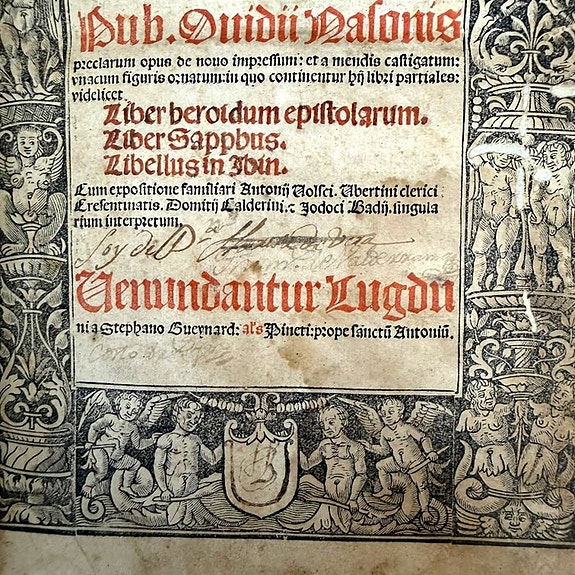 Pub. Ouidii Nasonis
preclarum opus de nouo impressum: et a mendis castigatum:
vnacum figuris ornatum: in quo continentur hij libri partiales:
videlicet
Liber heroidum epistolarum.
Liber Sapphus.
Libellus in Ibin.
Cum expositione familiari Antonij Uolsci. Ubertini clerici
Cresentinatis. Domitij Calderini. ⁊ Jodoci Badij. singula
rium interpretum.
Soy de D
Uenundantur Lugdu
ni a Stephano Gueynard: als Pineti: prope sanctū Antoniū.